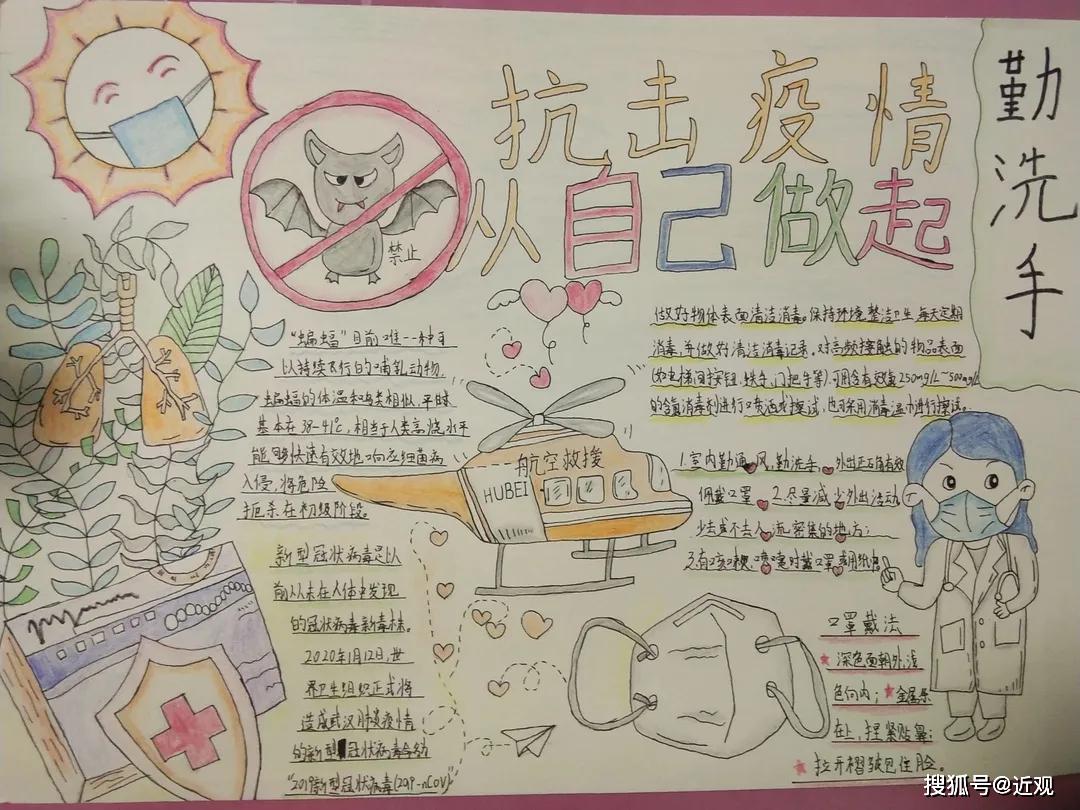 抗击疫情
从自己做起
勤洗手
禁止
"蝙蝠"目前唯一一种可
以持续飞行的哺乳动物,
蝙蝠的体温和鸟类相似,平时
基本在38-41℃,相当于人类高烧水平
能够快速有效地响应细菌病
入侵,将危险
扼杀在初级阶段。
做好物体表面清洁消毒。保持环境整洁卫生,每天定期
消毒,并做好清洁消毒记录,对高频接触的物品表面
(如电梯间按钮,扶手,门把手等),可用含有效氯250mg/L~500mg/L
的含氯消毒剂进行喷洒或擦拭,也可采用消毒湿巾进行擦拭。
航空救援
HUBEI
1.室内勤通风,勤洗手,外出正确有效
佩戴口罩 2.尽量减少外出活动
少去或不去人流密集的地方;
3.有咳嗽,喷嚏时戴口罩或用纸巾
新型冠状病毒是以
前从未在人体中发现
的冠状病毒新毒株。
2020年1月12日,世
界卫生组织正式将
造成武汉肺炎疫情
的新型冠状病毒命名
"2019新型冠状病毒(2019-nCoV)"
口罩戴法
深色面朝外,浅
色向内;金属条
在上,捏紧贴鼻;
拉开褶皱包住脸。
搜狐号@近观